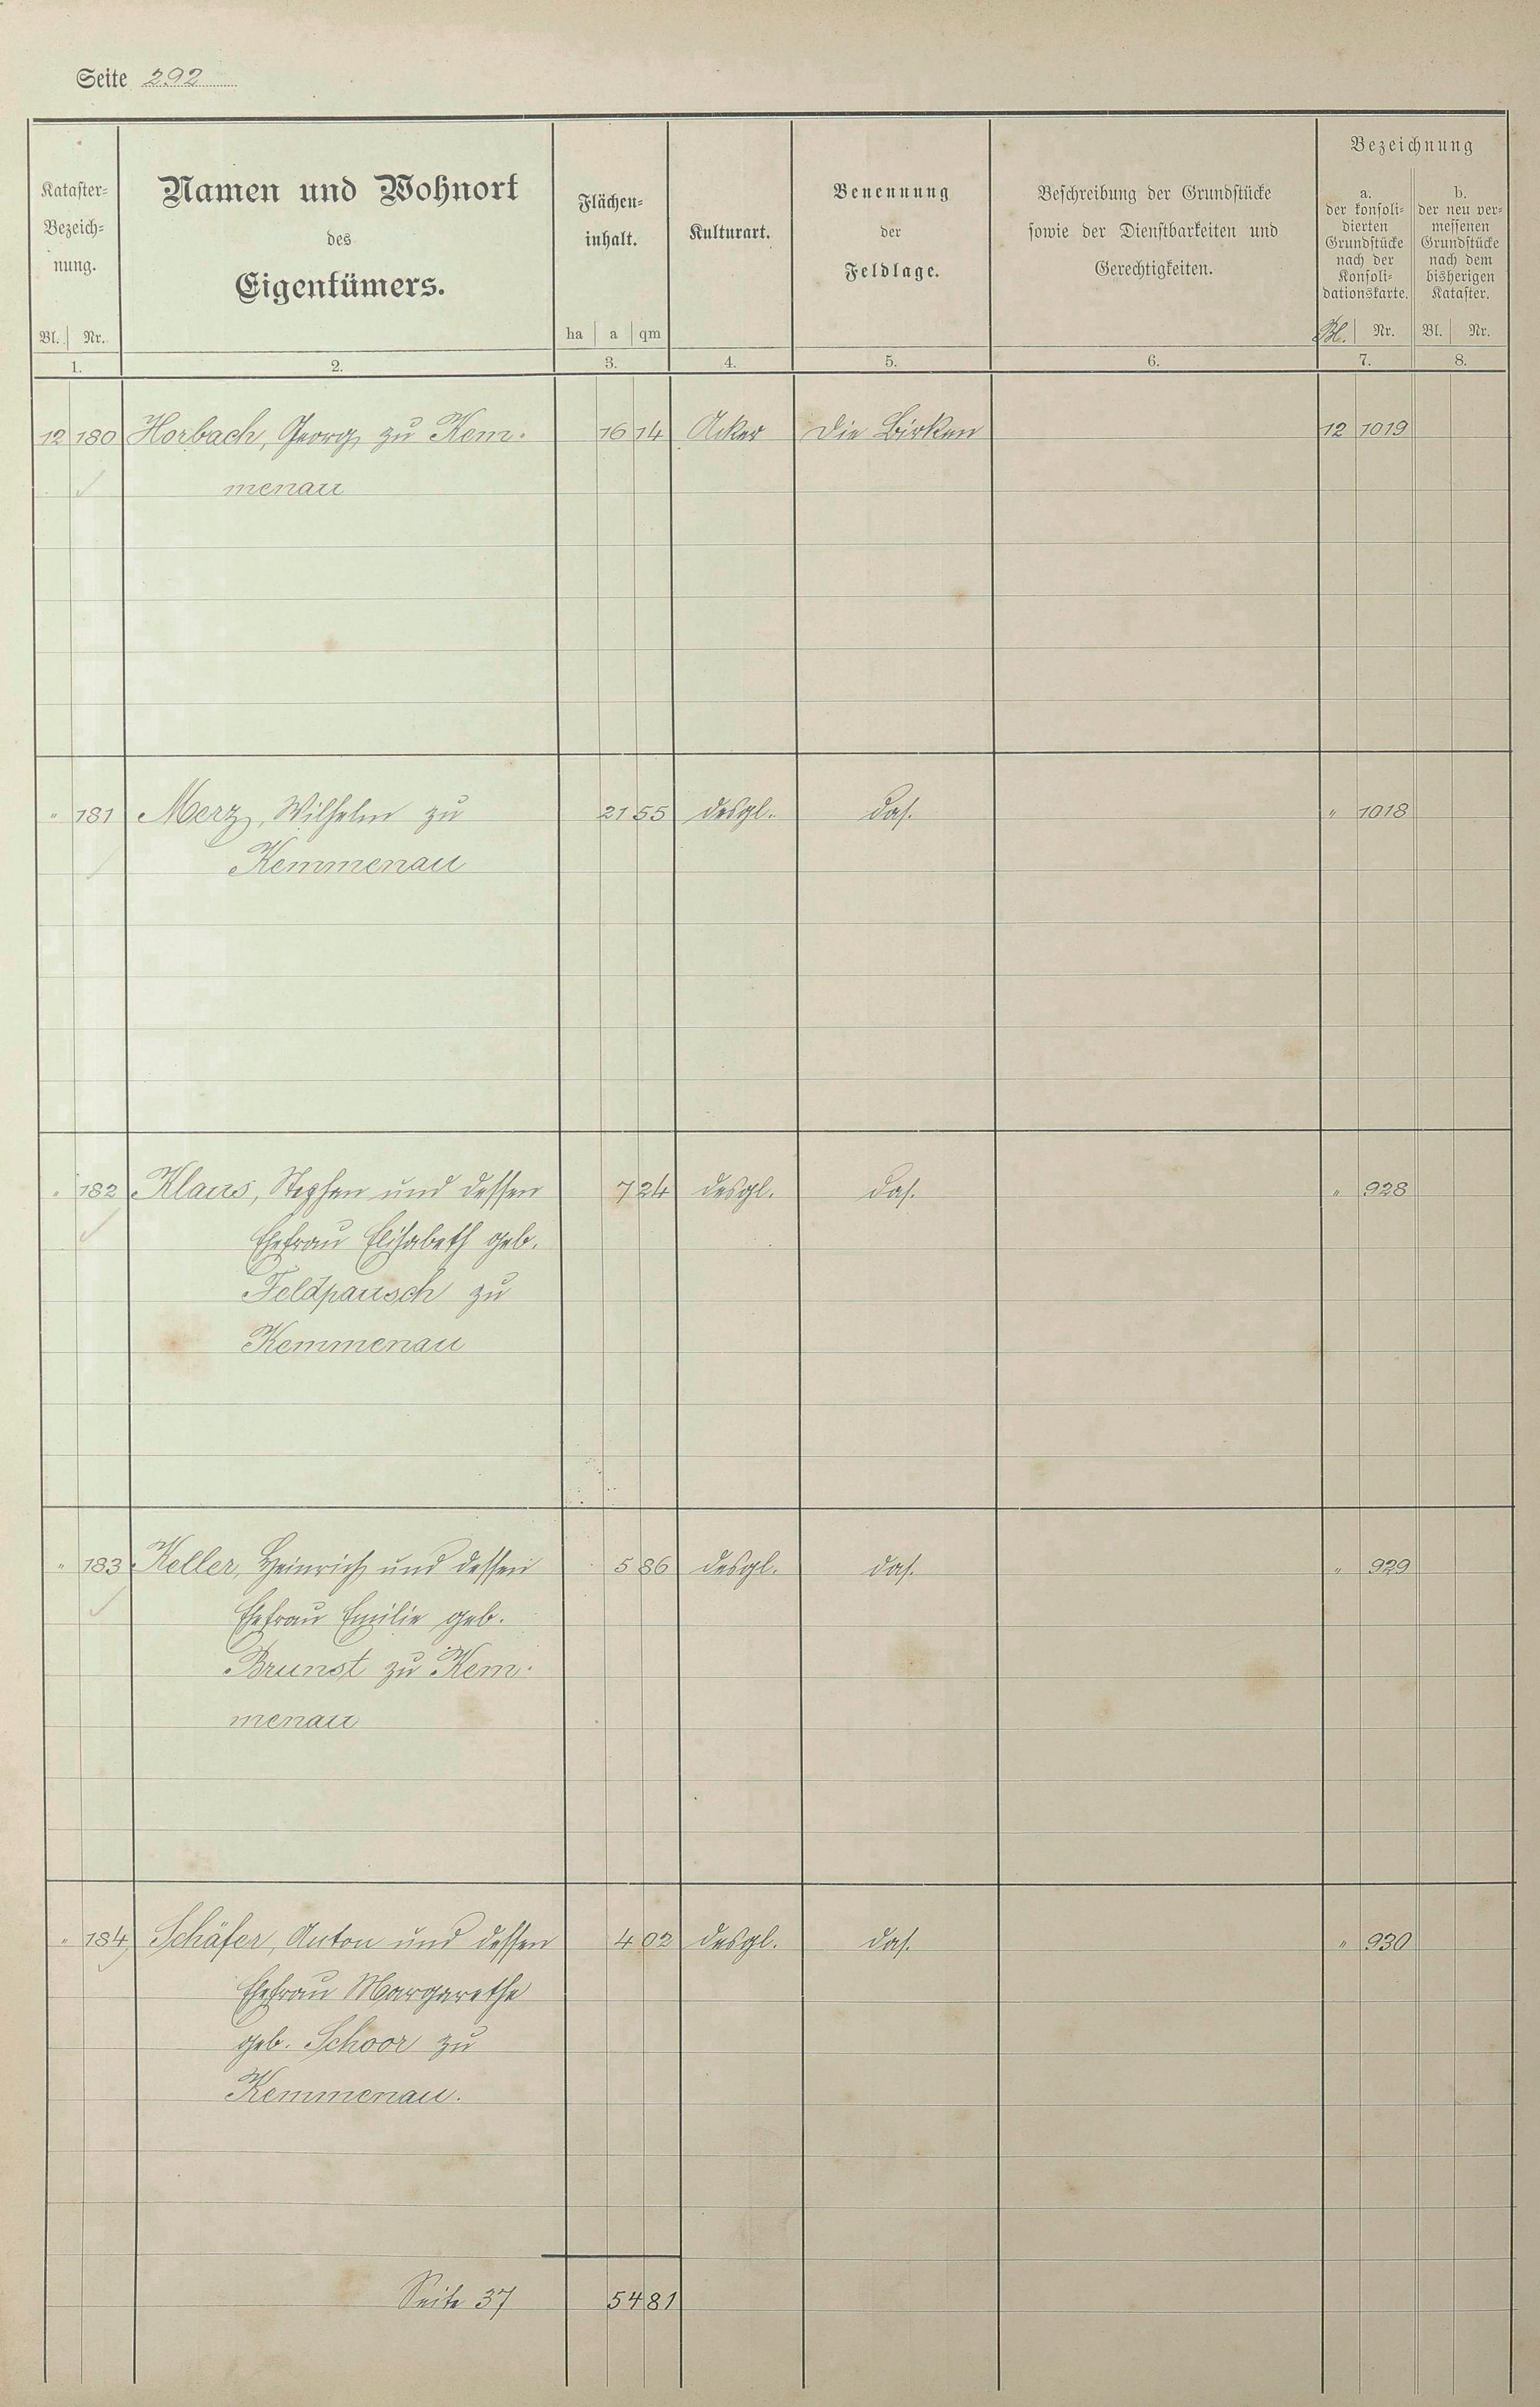 Seite 292
Kataster-
Bezeich-
nung.
Bl. Nr.
1.
Namen und Wohnort
des
Eigentümers.
2.
Flächen-
inhalt.
ha a qm
3.
Kulturart.
4.
Benennung
der
Feldlage.
5.
Beschreibung der Grundstücke
sowie der Dienstbarkeiten und
Gerechtigkeiten.
6.
Bezeichnung
a.
der konsoli-
dierten
Grundstücke
nach der
Konsoli-
dationskarte.
Bl. Nr.
7.
b.
der neu ver-
messenen
Grundstücke
nach dem
bisherigen
Kataster.
Bl. Nr.
8.
12 180 Horbach, Georg zu Kem- 16 14 Acker Die Birken 12 1019
menau
" 181 Merz, Wilhelm zu 21 55 desgl. das. " 1018
Kemmenau
" 182 Klaus, Stephan und dessen 7 24 desgl. das. " 928
Ehefrau Elisabeth geb.
Feldpausch zu
Kemmenau
" 183 Keller, Heinrich und dessen 5 86 desgl. das. " 929
Ehefrau Emilie geb.
Brunst zu Kem-
menau
" 184 Schäfer, Anton und dessen 4 02 desgl. das. " 930
Ehefrau Margarethe
geb. Schoor zu
Kemmenau.
Seite 37 54 81